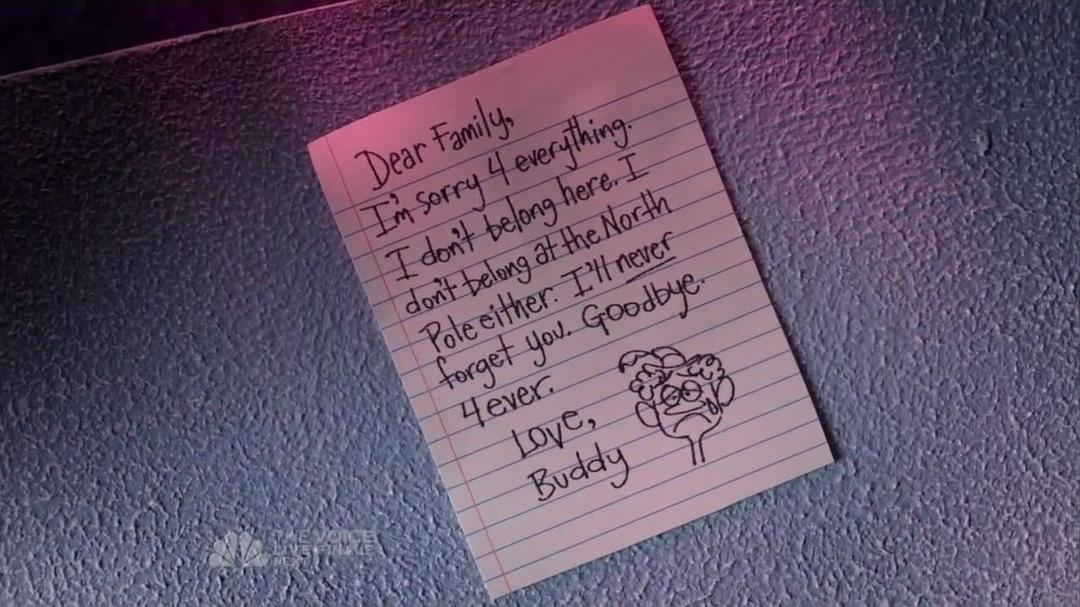 Dear Family,
I'm sorry 4 everything.
I don't belong here. I
don't belong at the North
Pole either. I'll never
forget you. Goodbye.
4 ever.
Love,
Buddy
THE VOICE
LIVE FINALE
NEXT